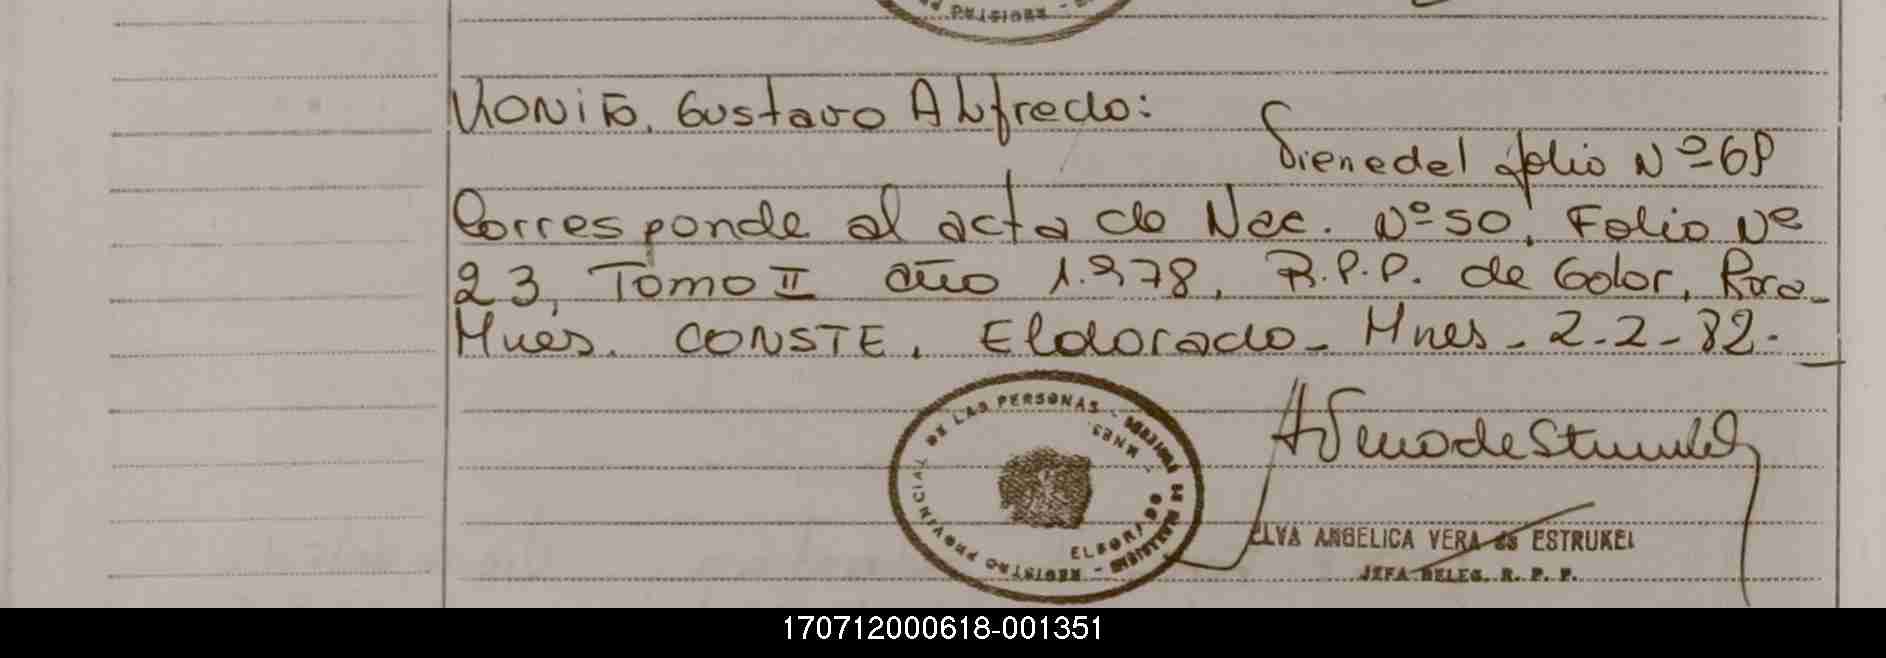 KONiG, Gustavo Alfredo:
Viene del folio Nº 68
Corresponde al acta de Nac. Nº 50, Folio Nº
23, Tomo II año 1.978, R.P.P. de
Mnes. CONSTE, Eldorado - Mnes - 2-2-82.-
REGISTRO PROVINCIAL DE LAS PERSONAS
ELDORADO - MNES.
ELVA ANGELICA VERA de ESTRUKEL
JEFA DELEG. R. P. P.
170712000618-001351